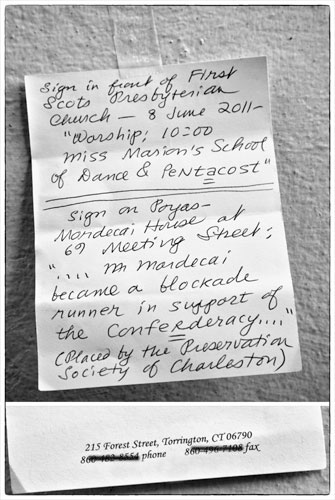 Sign in front of First
Scots Presbyterian
Church — 8 June 2011 —
"Worship: 10:00
Miss Marion's School
of Dance & Pentacost"
Sign on Poyas-
Mordecai House at
69 Meeting Street:
".... Mr Mordecai
became a blockade
runner in support of
the Confederacy...."
(Placed by the Preservation
Society of Charleston)
215 Forest Street, Torrington, CT 06790
phone fax